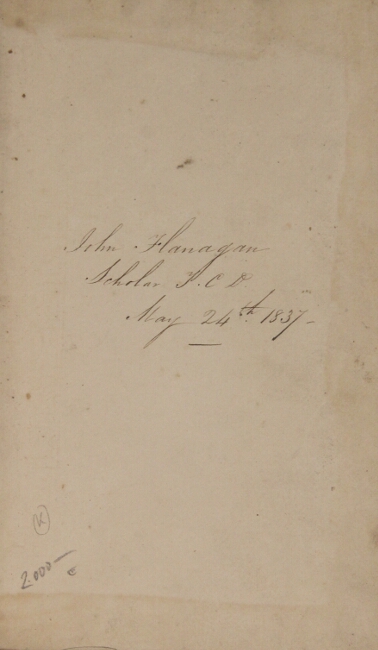 John Flanagan
Scholar T. C. D.
May 24th. 1837-
K
2.000- €